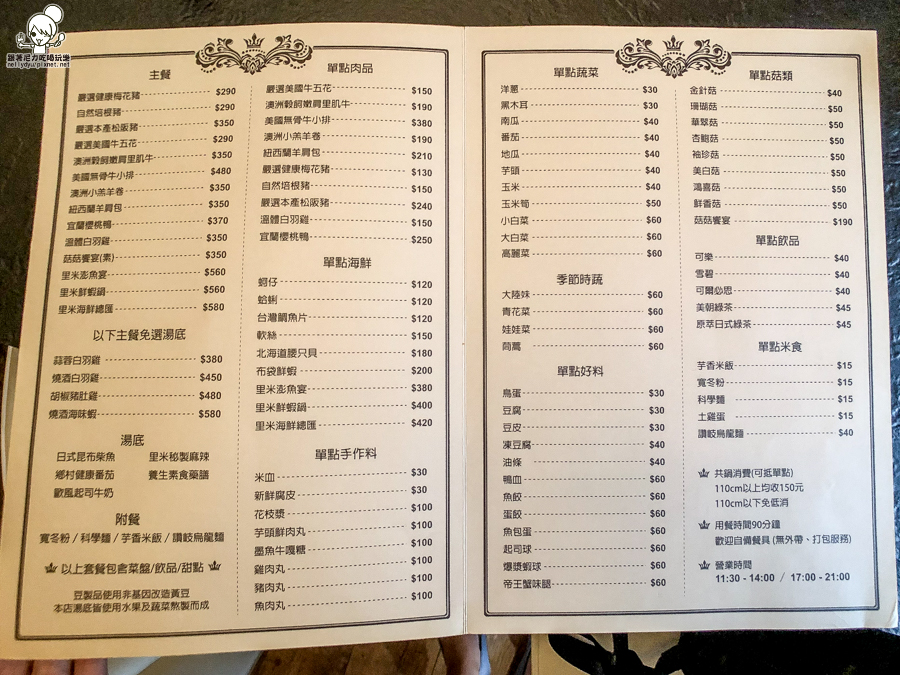 跟著尼力吃喝玩樂
nellydyu.pixnet.net
主餐
嚴選健康梅花豬 $290
自然培根豬 $290
嚴選本產松阪豬 $350
嚴選美國牛五花 $290
澳洲穀飼嫩肩里肌牛 $350
美國無骨牛小排 $480
澳洲小羔羊卷 $350
紐西蘭羊肩包 $350
宜蘭櫻桃鴨 $370
溫體白羽雞 $350
菇菇饗宴(素) $350
里米澎魚宴 $560
里米鮮蝦鍋 $560
里米海鮮總匯 $580
以下主餐免選湯底
蒜蓉白羽雞 $380
燒酒白羽雞 $450
胡椒豬肚雞 $480
燒酒海味蝦 $580
湯底
日式昆布柴魚 里米秘製麻辣
鄉村健康番茄 養生素食藥膳
歐風起司牛奶
附餐
寬冬粉 / 科學麵 / 芋香米飯 / 讚岐烏龍麵
以上套餐包含菜盤/飲品/甜點
豆製品使用非基因改造黃豆
本店湯底皆使用水果及蔬菜熬製而成
單點肉品
嚴選美國牛五花 $150
澳洲穀飼嫩肩里肌牛 $190
美國無骨牛小排 $380
澳洲小羔羊卷 $190
紐西蘭羊肩包 $210
嚴選健康梅花豬 $130
自然培根豬 $150
嚴選本產松阪豬 $240
溫體白羽雞 $150
宜蘭櫻桃鴨 $250
單點海鮮
蚵仔 $120
蛤蜊 $120
台灣鯛魚片 $120
軟絲 $150
北海道腰只貝 $180
布袋鮮蝦 $200
里米澎魚宴 $380
里米鮮蝦鍋 $400
里米海鮮總匯 $420
單點手作料
米血 $30
新鮮腐皮 $30
花枝漿 $100
芋頭鮮肉丸 $100
墨魚牛嘎糖 $100
雞肉丸 $100
豬肉丸 $100
魚肉丸 $100
單點蔬菜
洋蔥 $30
黑木耳 $30
南瓜 $40
番茄 $40
地瓜 $40
芋頭 $40
玉米 $40
玉米筍 $50
小白菜 $60
大白菜 $60
高麗菜 $60
季節時蔬
大陸妹 $60
青花菜 $60
娃娃菜 $60
茼蒿 $60
單點好料
鳥蛋 $30
豆腐 $30
豆皮 $30
凍豆腐 $40
油條 $40
鴨血 $60
魚餃 $60
蛋餃 $60
魚包蛋 $60
起司球 $60
爆漿蝦球 $60
帝王蟹味腿 $60
單點菇類
金針菇 $40
珊瑚菇 $50
華翠菇 $50
杏鮑菇 $50
袖珍菇 $50
美白菇 $50
鴻喜菇 $50
鮮香菇 $50
菇菇饗宴 $190
單點飲品
可樂 $40
雪碧 $40
可爾必思 $40
美朝綠茶 $45
原萃日式綠茶 $45
單點米食
芋香米飯 $15
寬冬粉 $15
科學麵 $15
土雞蛋 $15
讚岐烏龍麵 $40
共鍋消費(可抵單點)
110cm以上均收150元
110cm以下免低消
用餐時間90分鐘
歡迎自備餐具 (無外帶、打包服務)
營業時間
11:30 - 14:00 / 17:00 - 21:00